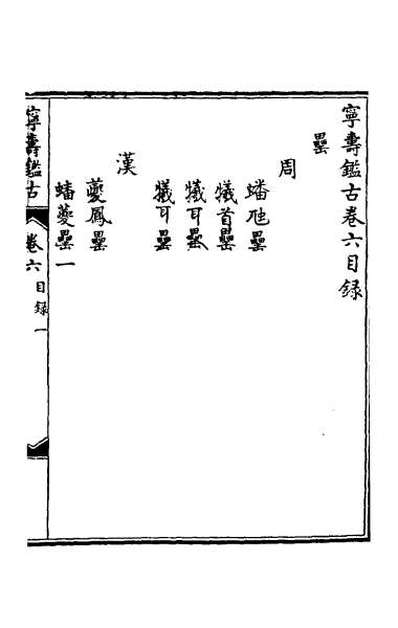 寧壽鑑古卷六目録
罍
周
蟠虺罍
犧首罍
犧耳罍
犧耳罍
漢
夔鳳罍
蟠夔罍一
寧壽鑑古
卷六
目録
一